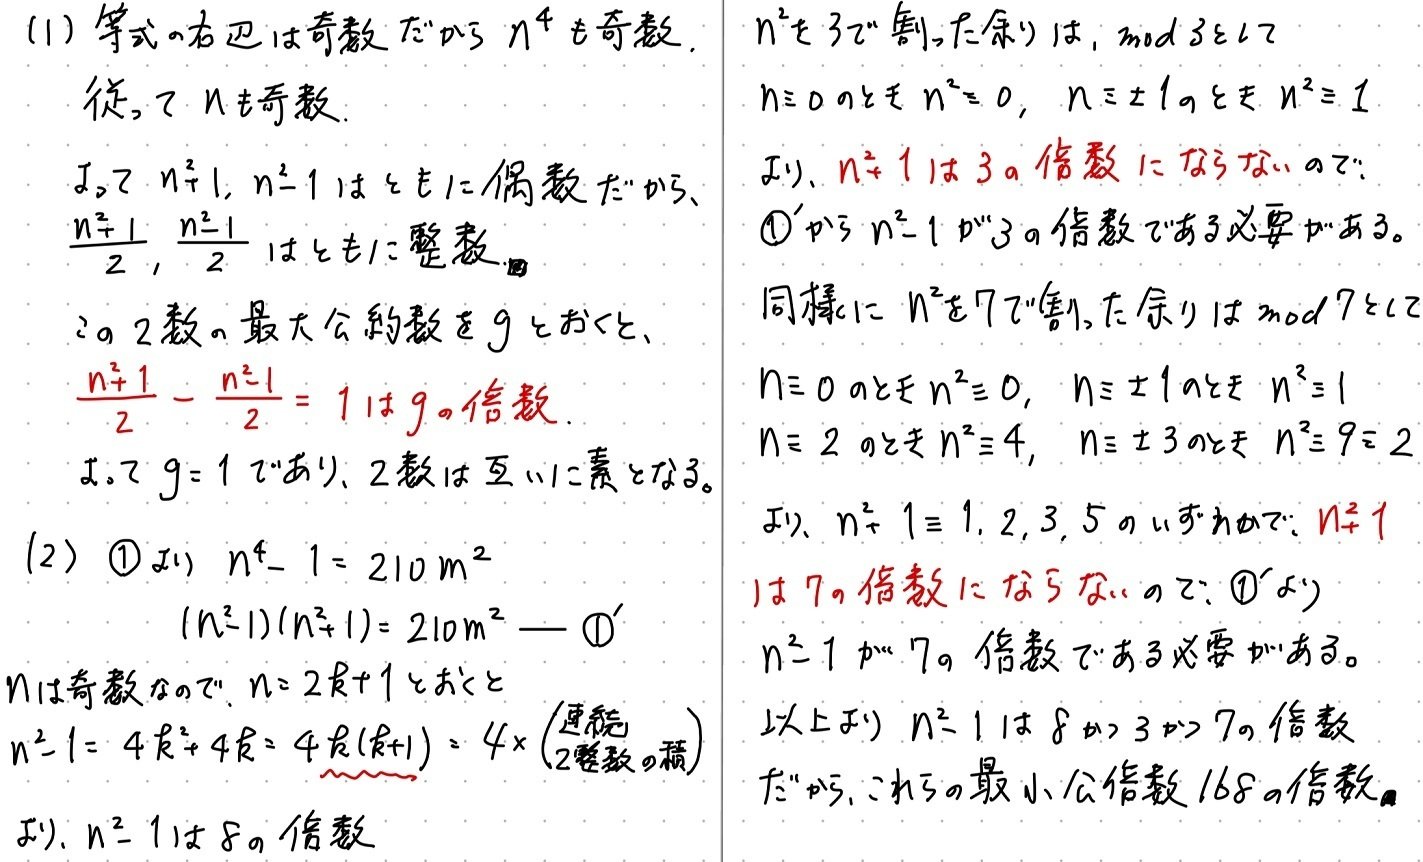 (1) 等式の右辺は奇数だから n⁴も奇数.
従って nも奇数.
よって n²+1, n²-1 はともに偶数だから、
(n²+1)/2, (n²-1)/2 はともに整数.
この2数の最大公約数を g とおくと、
(n²+1)/2 - (n²-1)/2 = 1 は g の倍数.
よって g=1 であり、2数は互いに素となる。
(2) ①より n⁴-1=210m²
(n²-1)(n²+1)=210m² — ①′
nは奇数なので、n=2k+1とおくと
n²-1=4k²+4k=4k(k+1)=4×(連続2整数の積)
より、n²-1は8の倍数
n²を3で割った余りは, mod 3として
n≡0のとき n²≡0, n≡±1のとき n²≡1
より、n²+1は3の倍数にならないので、
①′から n²-1が3の倍数である必要がある。
同様に n²を7で割った余りは mod 7として
n≡0のとき n²≡0, n≡±1のとき n²≡1
n≡2のとき n²≡4, n≡±3のとき n²≡9≡2
より、n²+1≡1, 2, 3, 5のいずれかで、n²+1
は7の倍数にならないので、①′より
n²-1が7の倍数である必要がある。
以上より n²-1は8かつ3かつ7の倍数
だから、これらの最小公倍数168の倍数.